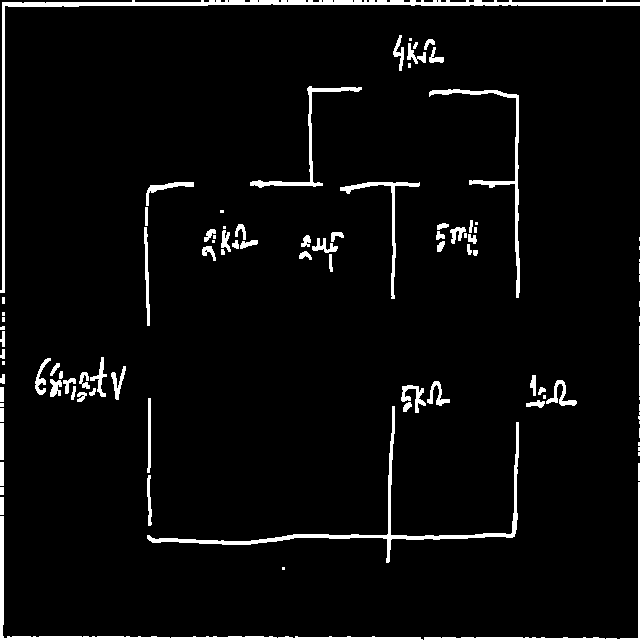 4kΩ
2kΩ
2μF
5mH
6sin3tV
5kΩ
10Ω